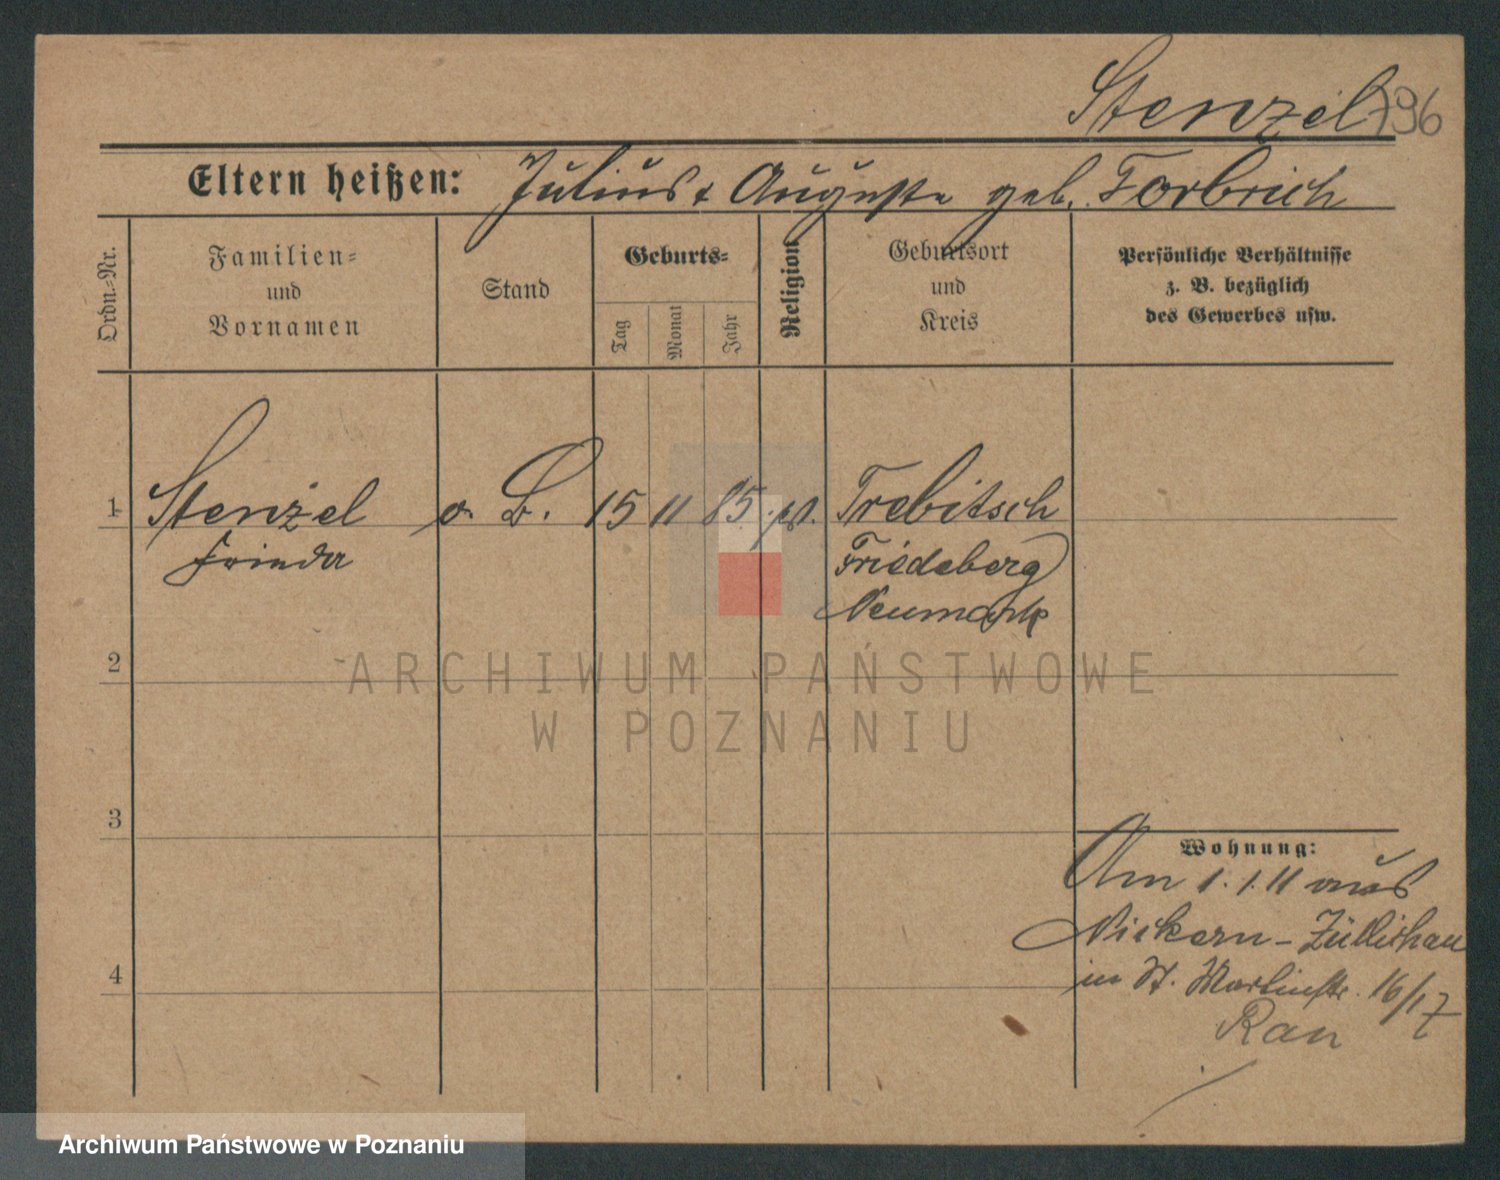 Stenzel 796
Eltern heißen: Julius & Auguste geb. Forbrich
Ordn.-Nr.
Familien-
und
Vornamen
Stand
Geburts-
Tag
Monat
Jahr
Religion
Geburtsort
und
Kreis
Persönliche Verhältnisse
z. B. bezüglich
des Gewerbes usw.
1 Stenzel o. B. 15 11 85 Trebitsch
Frieda Friedeberg
Neumark
2
ARCHIWUM PAŃSTWOWE
W POZNANIU
3
Wohnung:
Am 1.1.11 aus
Nickern-Züllichau
in St. Martinstr. 16/17
Rau
4
Archiwum Państwowe w Poznaniu